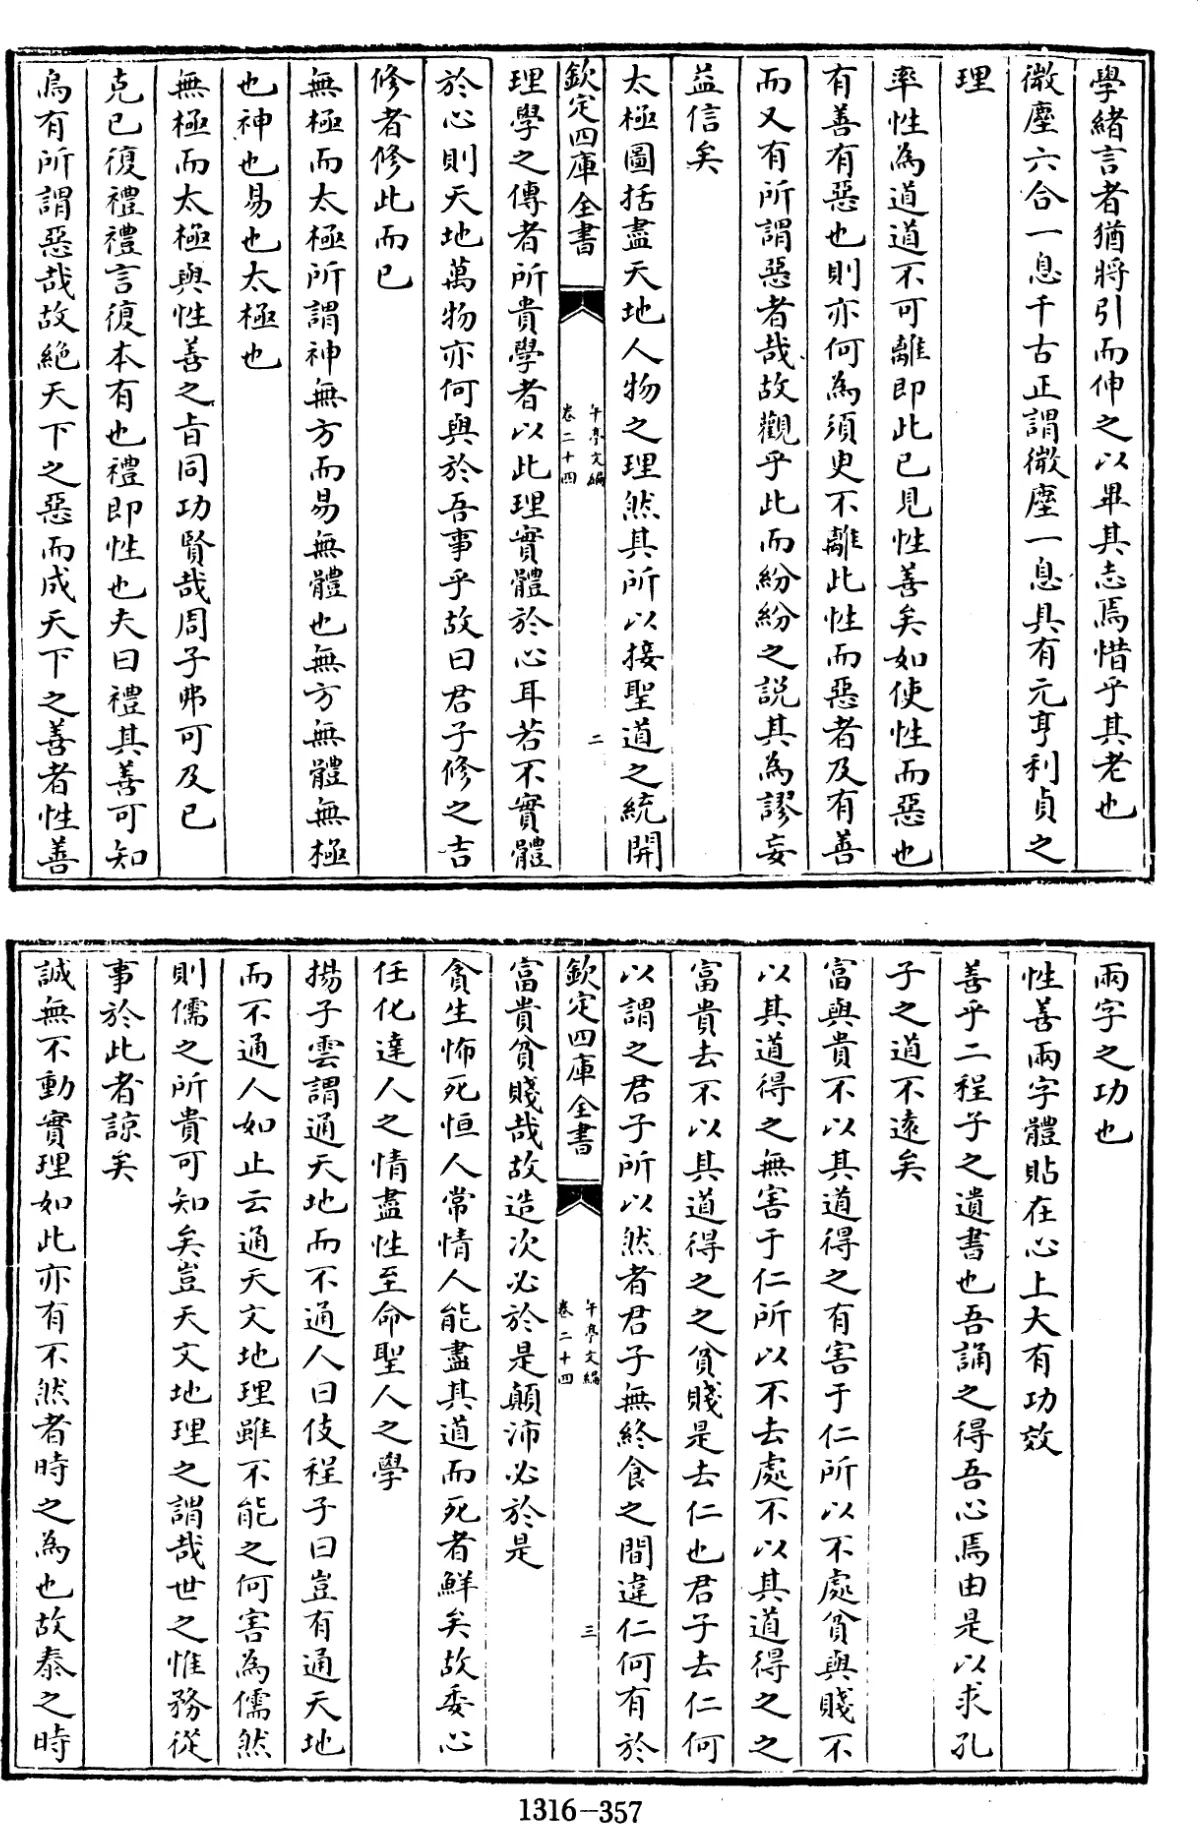 學緒言者猶將引而伸之以畢其志焉惜乎其老也
微塵六合一息千古正謂微塵一息具有元亨利貞之
理
率性為道道不可離即此已見性善矣如使性而惡也
有善有惡也則亦何為須臾不離此性而惡者及有善
而又有所謂惡者哉故觀乎此而紛紛之說其為謬妄
益信矣
太極圖括盡天地人物之理然其所以接聖道之統開
欽定四庫全書
午亭文編
卷二十四
二
理學之傳者所貴學者以此理實體於心耳若不實體
於心則天地萬物亦何與於吾事乎故曰君子修之吉
修者修此而已
無極而太極所謂神無方而易無體也無方無體無極
也神也易也太極也
無極而太極與性善之旨同功賢哉周子弗可及已
克已復禮禮言復本有也禮即性也夫曰禮其善可知
烏有所謂惡哉故絕天下之惡而成天下之善者性善
兩字之功也
性善兩字體貼在心上大有功效
善乎二程子之遺書也吾誦之得吾心焉由是以求孔
子之道不遠矣
富與貴不以其道得之有害于仁所以不處貧與賤不
以其道得之無害于仁所以不去處不以其道得之之
富貴去不以其道得之之貧賤是去仁也君子去仁何
以謂之君子所以然者君子無終食之間違仁何有於
欽定四庫全書
午亭文編
卷二十四
三
富貴貧賤哉故造次必於是顛沛必於是
貪生怖死恒人常情人能盡其道而死者鮮矣故委心
任化達人之情盡性至命聖人之學
揚子雲謂通天地而不通人曰伎程子曰豈有通天地
而不通人如止云通天文地理雖不能之何害為儒然
則儒之所貴可知矣豈天文地理之謂哉世之惟務從
事於此者諒矣
誠無不動實理如此亦有不然者時之為也故泰之時
1316-357